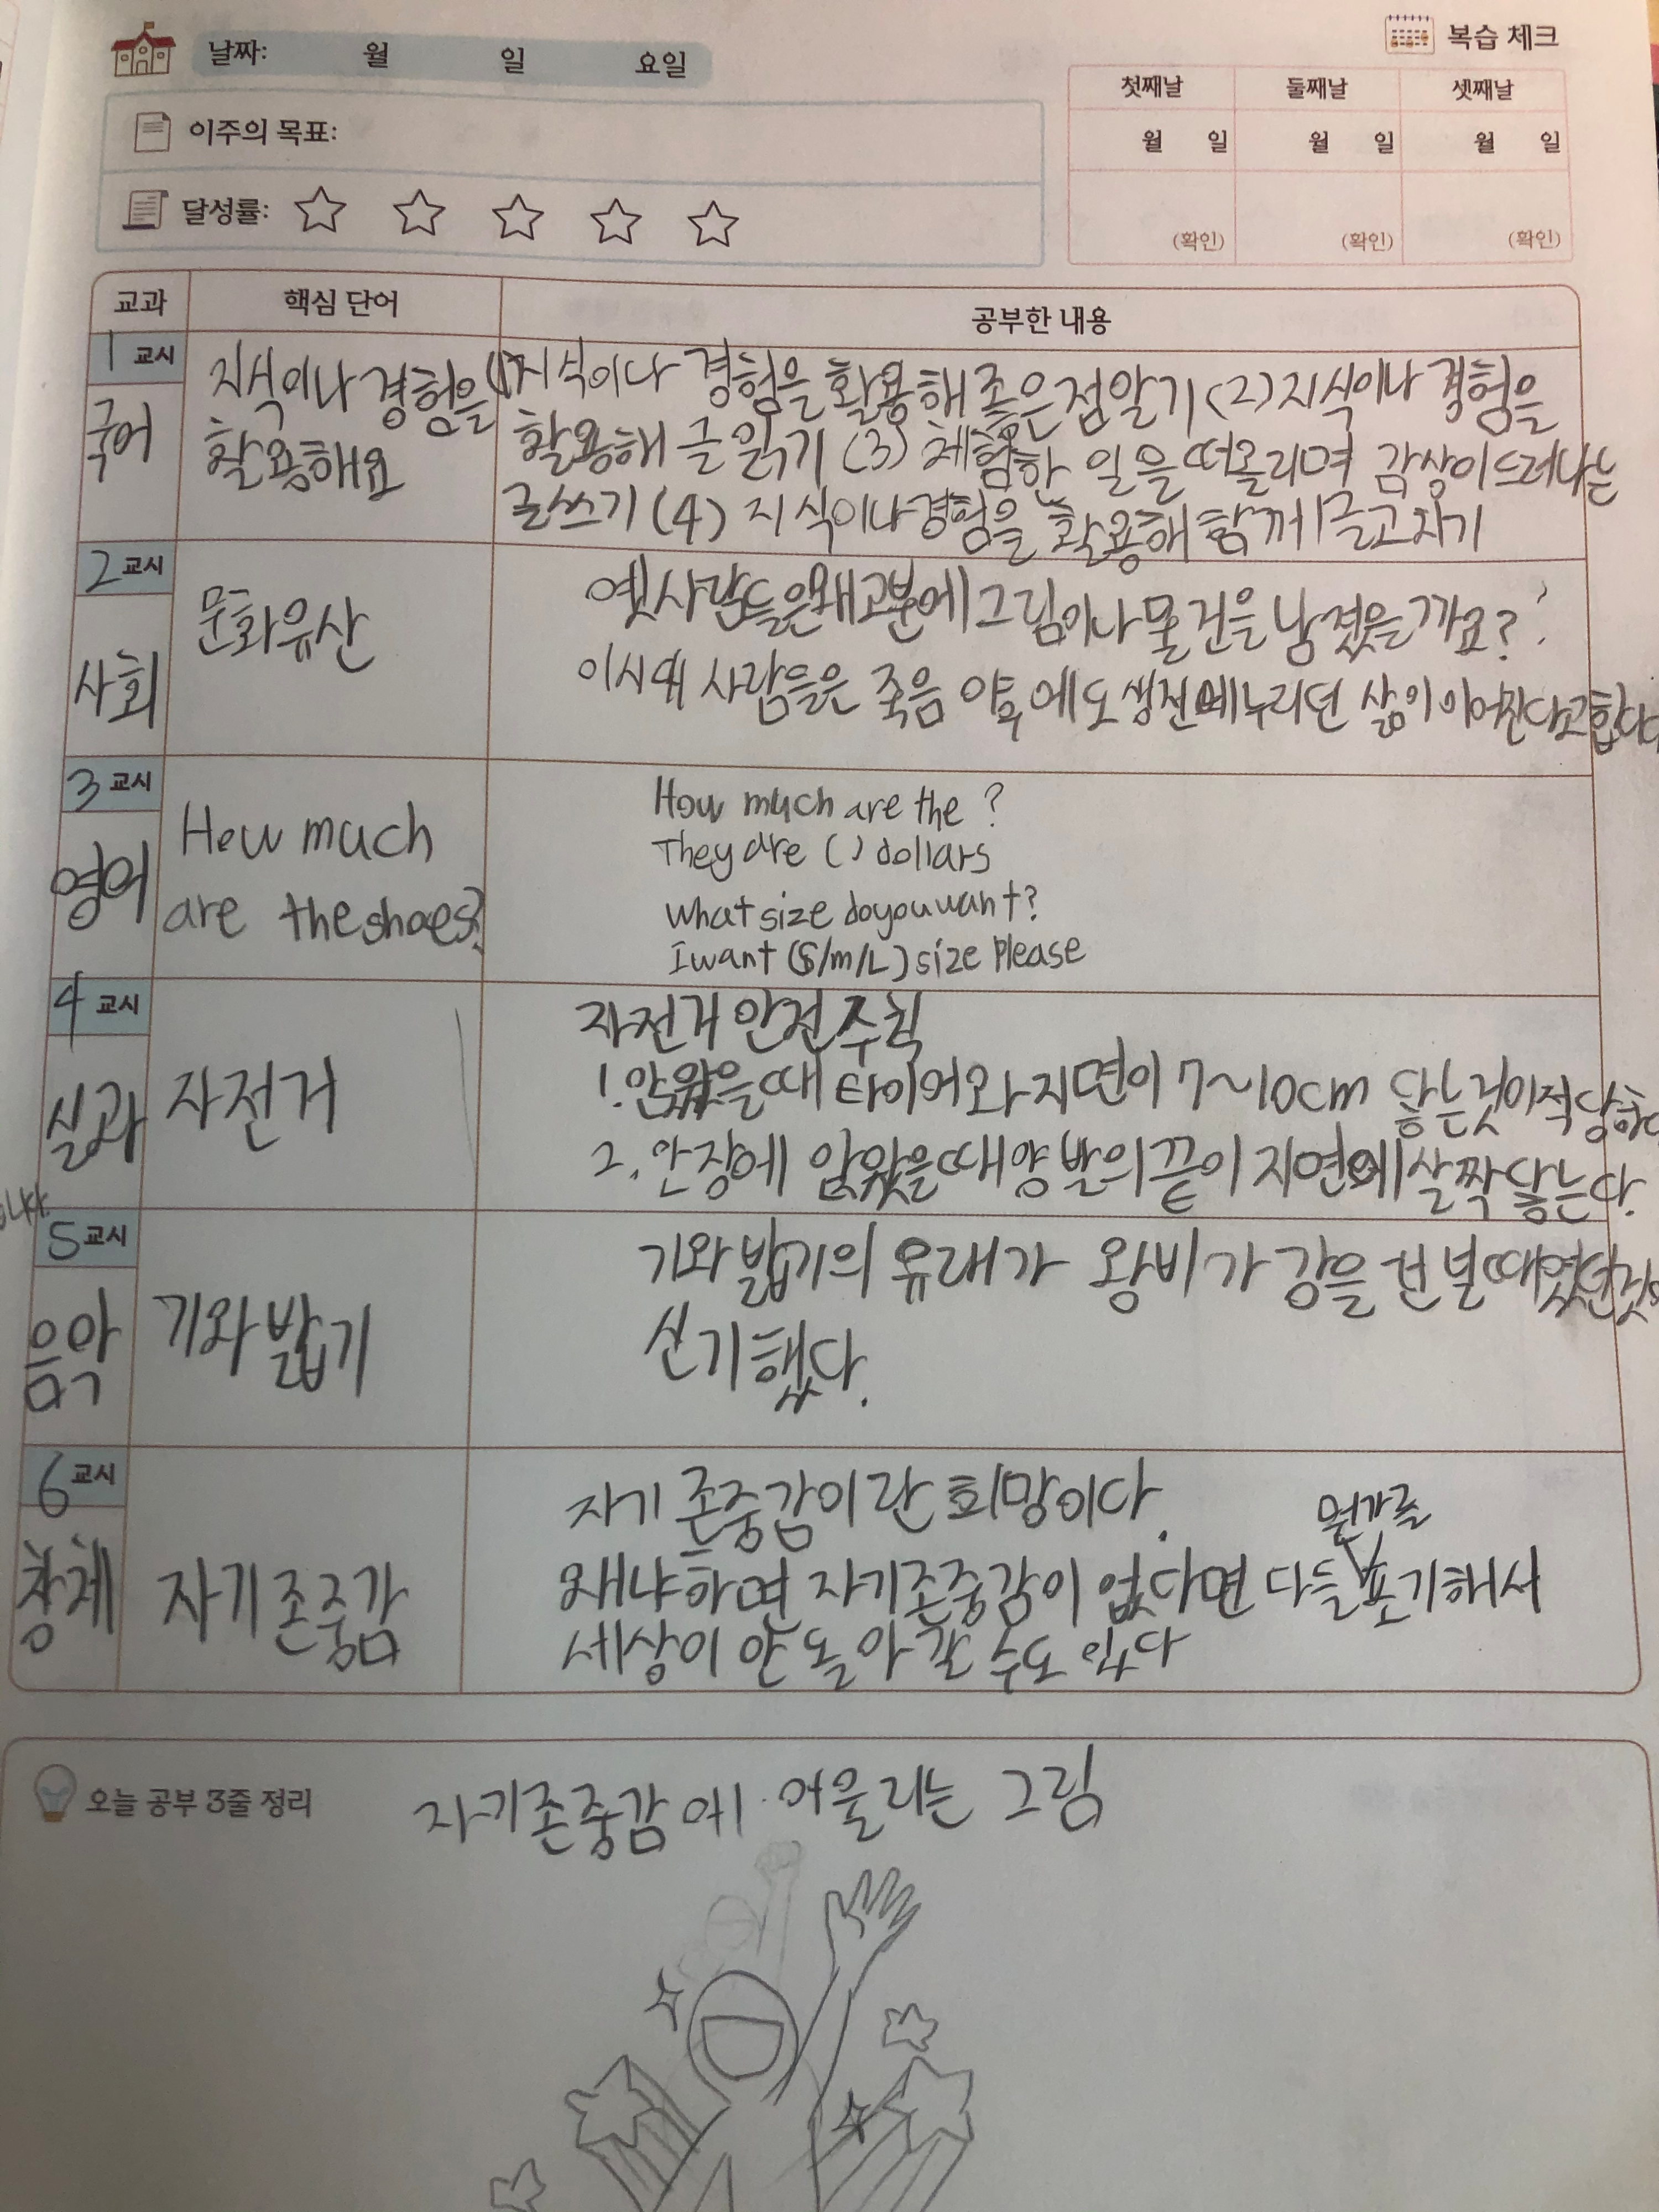 날짜: 월 일 요일
복습 체크
첫째날 둘째날 셋째날
월 일 월 일 월 일
(확인) (확인) (확인)
이주의 목표:
달성률:
교과 핵심 단어 공부한 내용
1교시
국어
지식이나 경험을
활용해요
(1)지식이나 경험을 활용해 좋은점알기 (2)지식이나 경험을
활용해 글읽기 (3) 체험한 일을 떠올리며 감상이드러나는
글쓰기 (4) 지식이나경험을 활용해 함께 글고치기
2교시
사회
문화유산
옛사람들은왜고분에그림이나물건을남겼을까요?
이시대 사람들은 죽음 이후에도 생전에누리던 삶이 이어진다고
3교시
영어
How much
are the shoes?
How much are the ?
They are ( ) dollars
What size do you want?
I want (S/m/L) size Please
4교시
실과
자전거
자전거 안전수칙
1. 앉았을때 타이어와지면이 7~10cm 닿는것이적당하
2. 안장에 앉았을때양발의끝이 지면에살짝닿는다.
5교시
음악
기와밟기
기와밟기의 유래가 왕비가 강을 건널때였던것
신기했다.
6교시
창체
자기존중감
자기 존중감이란 희망이다.
왜냐하면 자기존중감이 없다면 다들 뭔가를 포기해서
세상이 안돌아갈 수도 있다
오늘 공부 3줄 정리
자기존중감에 어울리는 그림